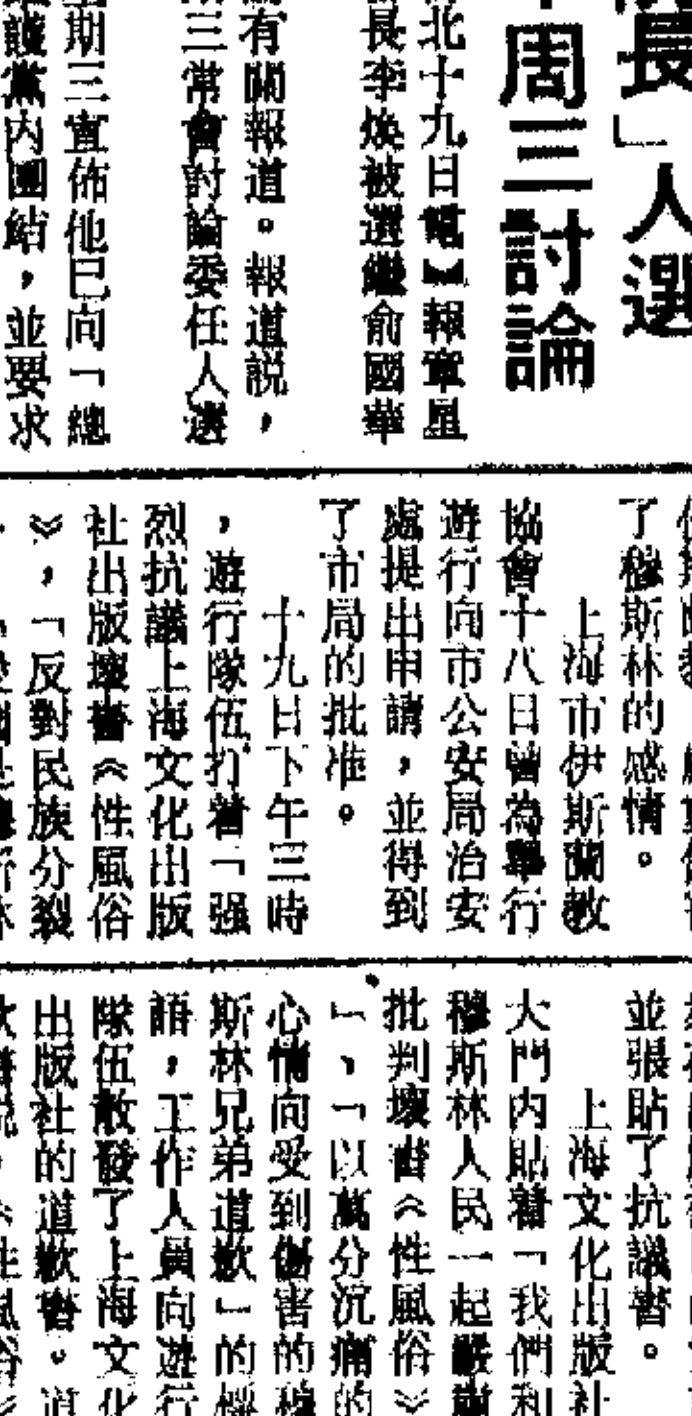 長」人選
周三討論
北十九日電】報章星
長李煥被選繼俞國華
有關報道。報道説，
三常會討論委任人選
期三宣佈他已向「總
護黨內團結，並要求
了穆斯林的感情。
上海市伊斯蘭教
協會十八日曾為舉行
遊行向市公安局治安
處提出申請，並得到
了市局的批准。
十九日下午三時
，遊行隊伍打着「强
烈抗議上海文化出版
社出版壞書《性風俗
》，「反對民族分裂
並張貼了抗議書。
上海文化出版社
大門內貼着「我們和
穆斯林人民一起嚴肅
批判壞書《性風俗》
」、「以萬分沉痛的
心情向受到傷害的穆
斯林兄弟道歉」的標
語，工作人員向遊行
隊伍散發了上海文化
出版社的道歉書。道